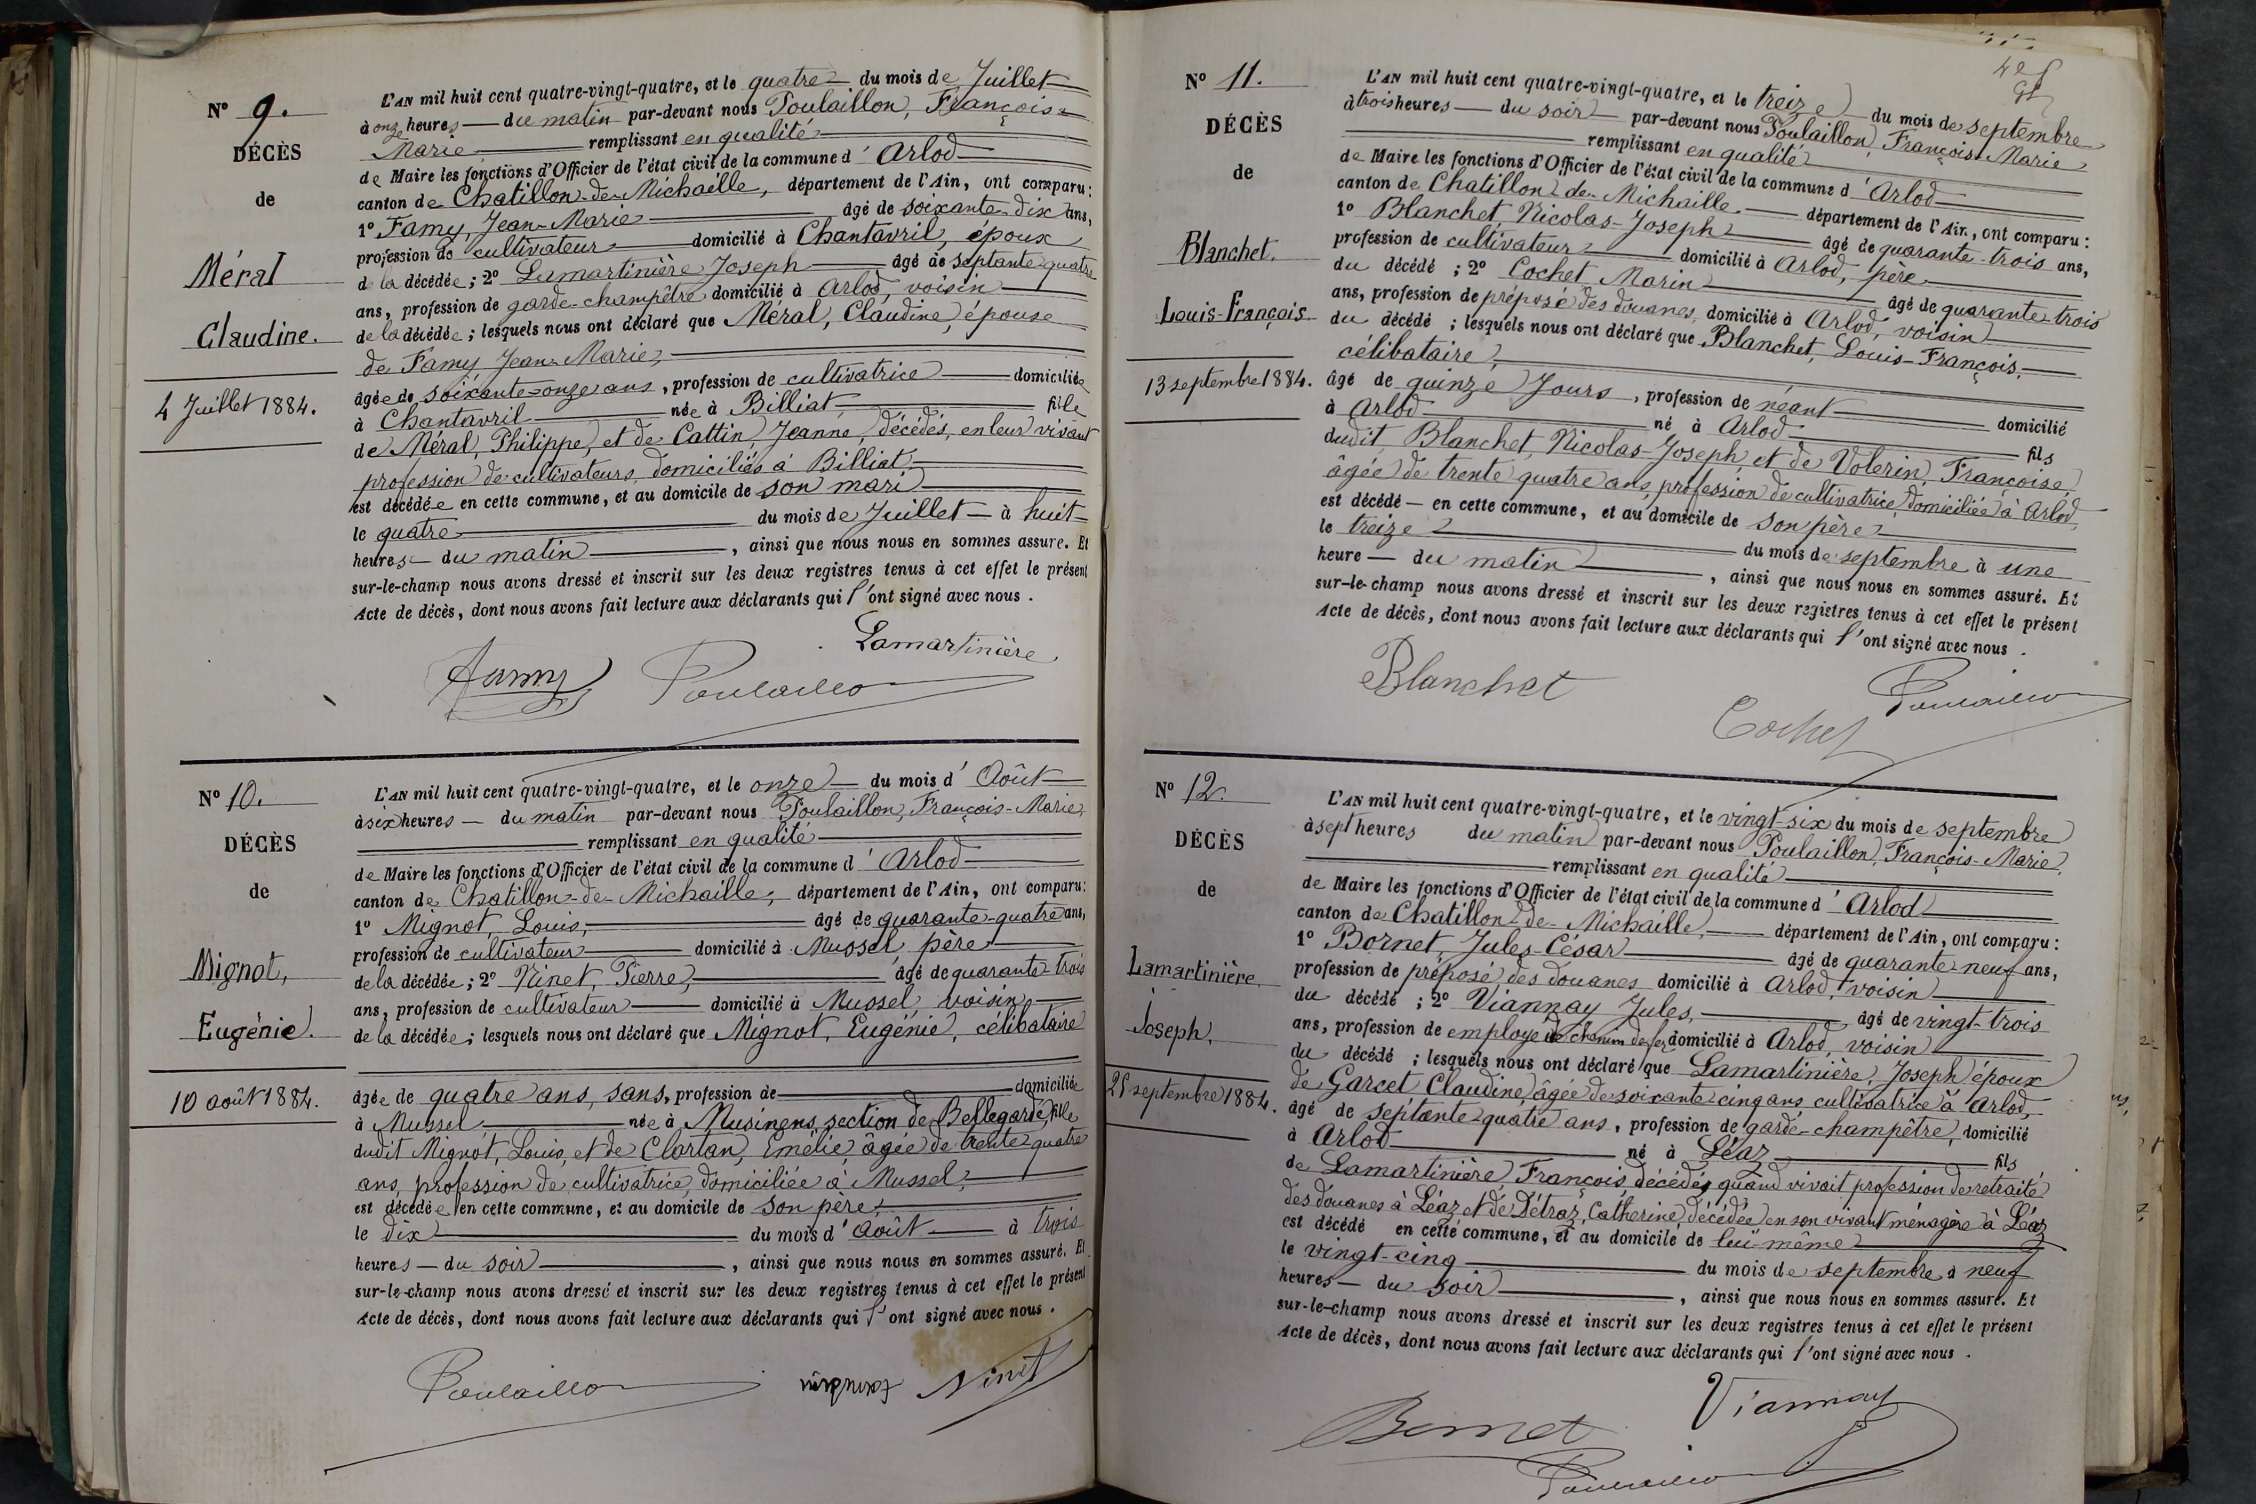 N° 9.
DÉCÈS
de
Méral
Claudine.
4 Juillet 1884.
L'AN mil huit cent quatre-vingt-quatre, et le quatre du mois de Juillet
à onze heures du matin par-devant nous Poulaillon, François-
Marie remplissant en qualité
de Maire les fonctions d'Officier de l'état civil de la commune d'Arlod
canton de Chatillon-de-Michaille, département de l'Ain, ont comparu:
1° Famy, Jean-Marie âgé de soixante-dix ans,
profession de cultivateur domicilié à Chantavril, époux
de la décédée; 2° Lamartinière Joseph âgé de septante-quatre
ans, profession de garde-champêtre domicilié à Arlod, voisin
de la décédée; lesquels nous ont déclaré que Méral, Claudine, épouse
de Famy, Jean-Marie,
âgée de soixante-onze ans, profession de cultivatrice domiciliée
à Chantavril née à Billiat fille
de Méral, Philippe, et de Cattin, Jeanne, décédés, en leur vivant
profession de cultivateurs, domiciliés à Billiat,
est décédée en cette commune, et au domicile de son mari
le quatre du mois de Juillet à huit
heures du matin, ainsi que nous nous en sommes assuré. Et
sur-le-champ nous avons dressé et inscrit sur les deux registres tenus à cet effet le présent
Acte de décès, dont nous avons fait lecture aux déclarants qui l'ont signé avec nous.
Lamartinière
Famy Poulaillon
N° 10.
DÉCÈS
de
Mignot,
Eugénie.
10 août 1884.
L'AN mil huit cent quatre-vingt-quatre, et le onze du mois d'Août
à six heures du matin par-devant nous Poulaillon, François-Marie,
remplissant en qualité
de Maire les fonctions d'Officier de l'état civil de la commune d'Arlod
canton de Chatillon-de-Michaille, département de l'Ain, ont comparu:
1° Mignot, Louis, âgé de quarante-quatre ans,
profession de cultivateur domicilié à Mussel, père
de la décédée; 2° Ninet, Pierre, âgé de quarante-trois
ans, profession de cultivateur domicilié à Mussel, voisin
de la décédée; lesquels nous ont déclaré que Mignot, Eugénie, célibataire
âgée de quatre ans, sans, profession de domiciliée
à Mussel, née à Musinens, section de Bellegarde, fille
dudit Mignot, Louis, et de Clartan, Emélie, âgée de trente-quatre
ans, profession de cultivatrice, domiciliée à Mussel,
est décédée en cette commune, et au domicile de son père,
le dix du mois d'Août à trois
heures du soir, ainsi que nous nous en sommes assuré. Et
sur-le-champ nous avons dressé et inscrit sur les deux registres tenus à cet effet le présent
Acte de décès, dont nous avons fait lecture aux déclarants qui l'ont signé avec nous.
Poulaillon Ninet
N° 11.
DÉCÈS
de
Blanchet.
Louis-François
13 septembre 1884.
L'AN mil huit cent quatre-vingt-quatre, et le treize du mois de septembre
à trois heures du soir par-devant nous Poulaillon, François-Marie
remplissant en qualité
de Maire les fonctions d'Officier de l'état civil de la commune d'Arlod
canton de Chatillon-de-Michaille département de l'Ain, ont comparu:
1° Blanchet, Nicolas-Joseph âgé de quarante-trois ans,
profession de cultivateur domicilié à Arlod, père
du décédé; 2° Cochet Marin âgé de quarante-trois
ans, profession de préposé des douanes, domicilié à Arlod, voisin
du décédé; lesquels nous ont déclaré que Blanchet, Louis-François,
célibataire
âgé de quinze Jours, profession de néant domicilié
à Arlod né à Arlod fils
dudit Blanchet, Nicolas-Joseph et de Volerin, Françoise
âgée de trente quatre ans, profession de cultivatrice, domiciliée à Arlod,
est décédé en cette commune, et au domicile de son père
le treize du mois de septembre à une
heure du matin, ainsi que nous nous en sommes assuré. Et
sur-le-champ nous avons dressé et inscrit sur les deux registres tenus à cet effet le présent
Acte de décès, dont nous avons fait lecture aux déclarants qui l'ont signé avec nous.
Blanchet Poulaillon
Cochet
N° 12.
DÉCÈS
de
Lamartinière
Joseph.
25 septembre 1884.
L'AN mil huit cent quatre-vingt-quatre, et le vingt-six du mois de septembre
à sept heures du matin par-devant nous Poulaillon, François-Marie,
remplissant en qualité
de Maire les fonctions d'Officier de l'état civil de la commune d'Arlod
canton de Chatillon-de-Michaille, département de l'Ain, ont comparu:
1° Bornet, Jules-César âgé de quarante-neuf ans,
profession de préposé des douanes domicilié à Arlod, voisin
du décédé; 2° Viannay Jules, âgé de vingt-trois
ans, profession de employé de chemin de fer domicilié à Arlod, voisin
du décédé; lesquels nous ont déclaré que Lamartinière, Joseph époux
de Garcet Claudine, âgée de soixante-cinq ans cultivatrice à Arlod,
âgé de septante-quatre ans, profession de garde-champêtre, domicilié
à Arlod né à Léaz fils
de Lamartinière François décédé, quand vivait profession de retraité
des douanes à Léaz et de Détraz, Catherine, décédée en son vivant ménagère à Léaz
est décédé en cette commune, et au domicile de lui-même
le vingt-cinq du mois de septembre à neuf
heures du soir, ainsi que nous nous en sommes assuré. Et
sur-le-champ nous avons dressé et inscrit sur les deux registres tenus à cet effet le présent
Acte de décès, dont nous avons fait lecture aux déclarants qui l'ont signé avec nous.
Viannay
Bornet
Poulaillon